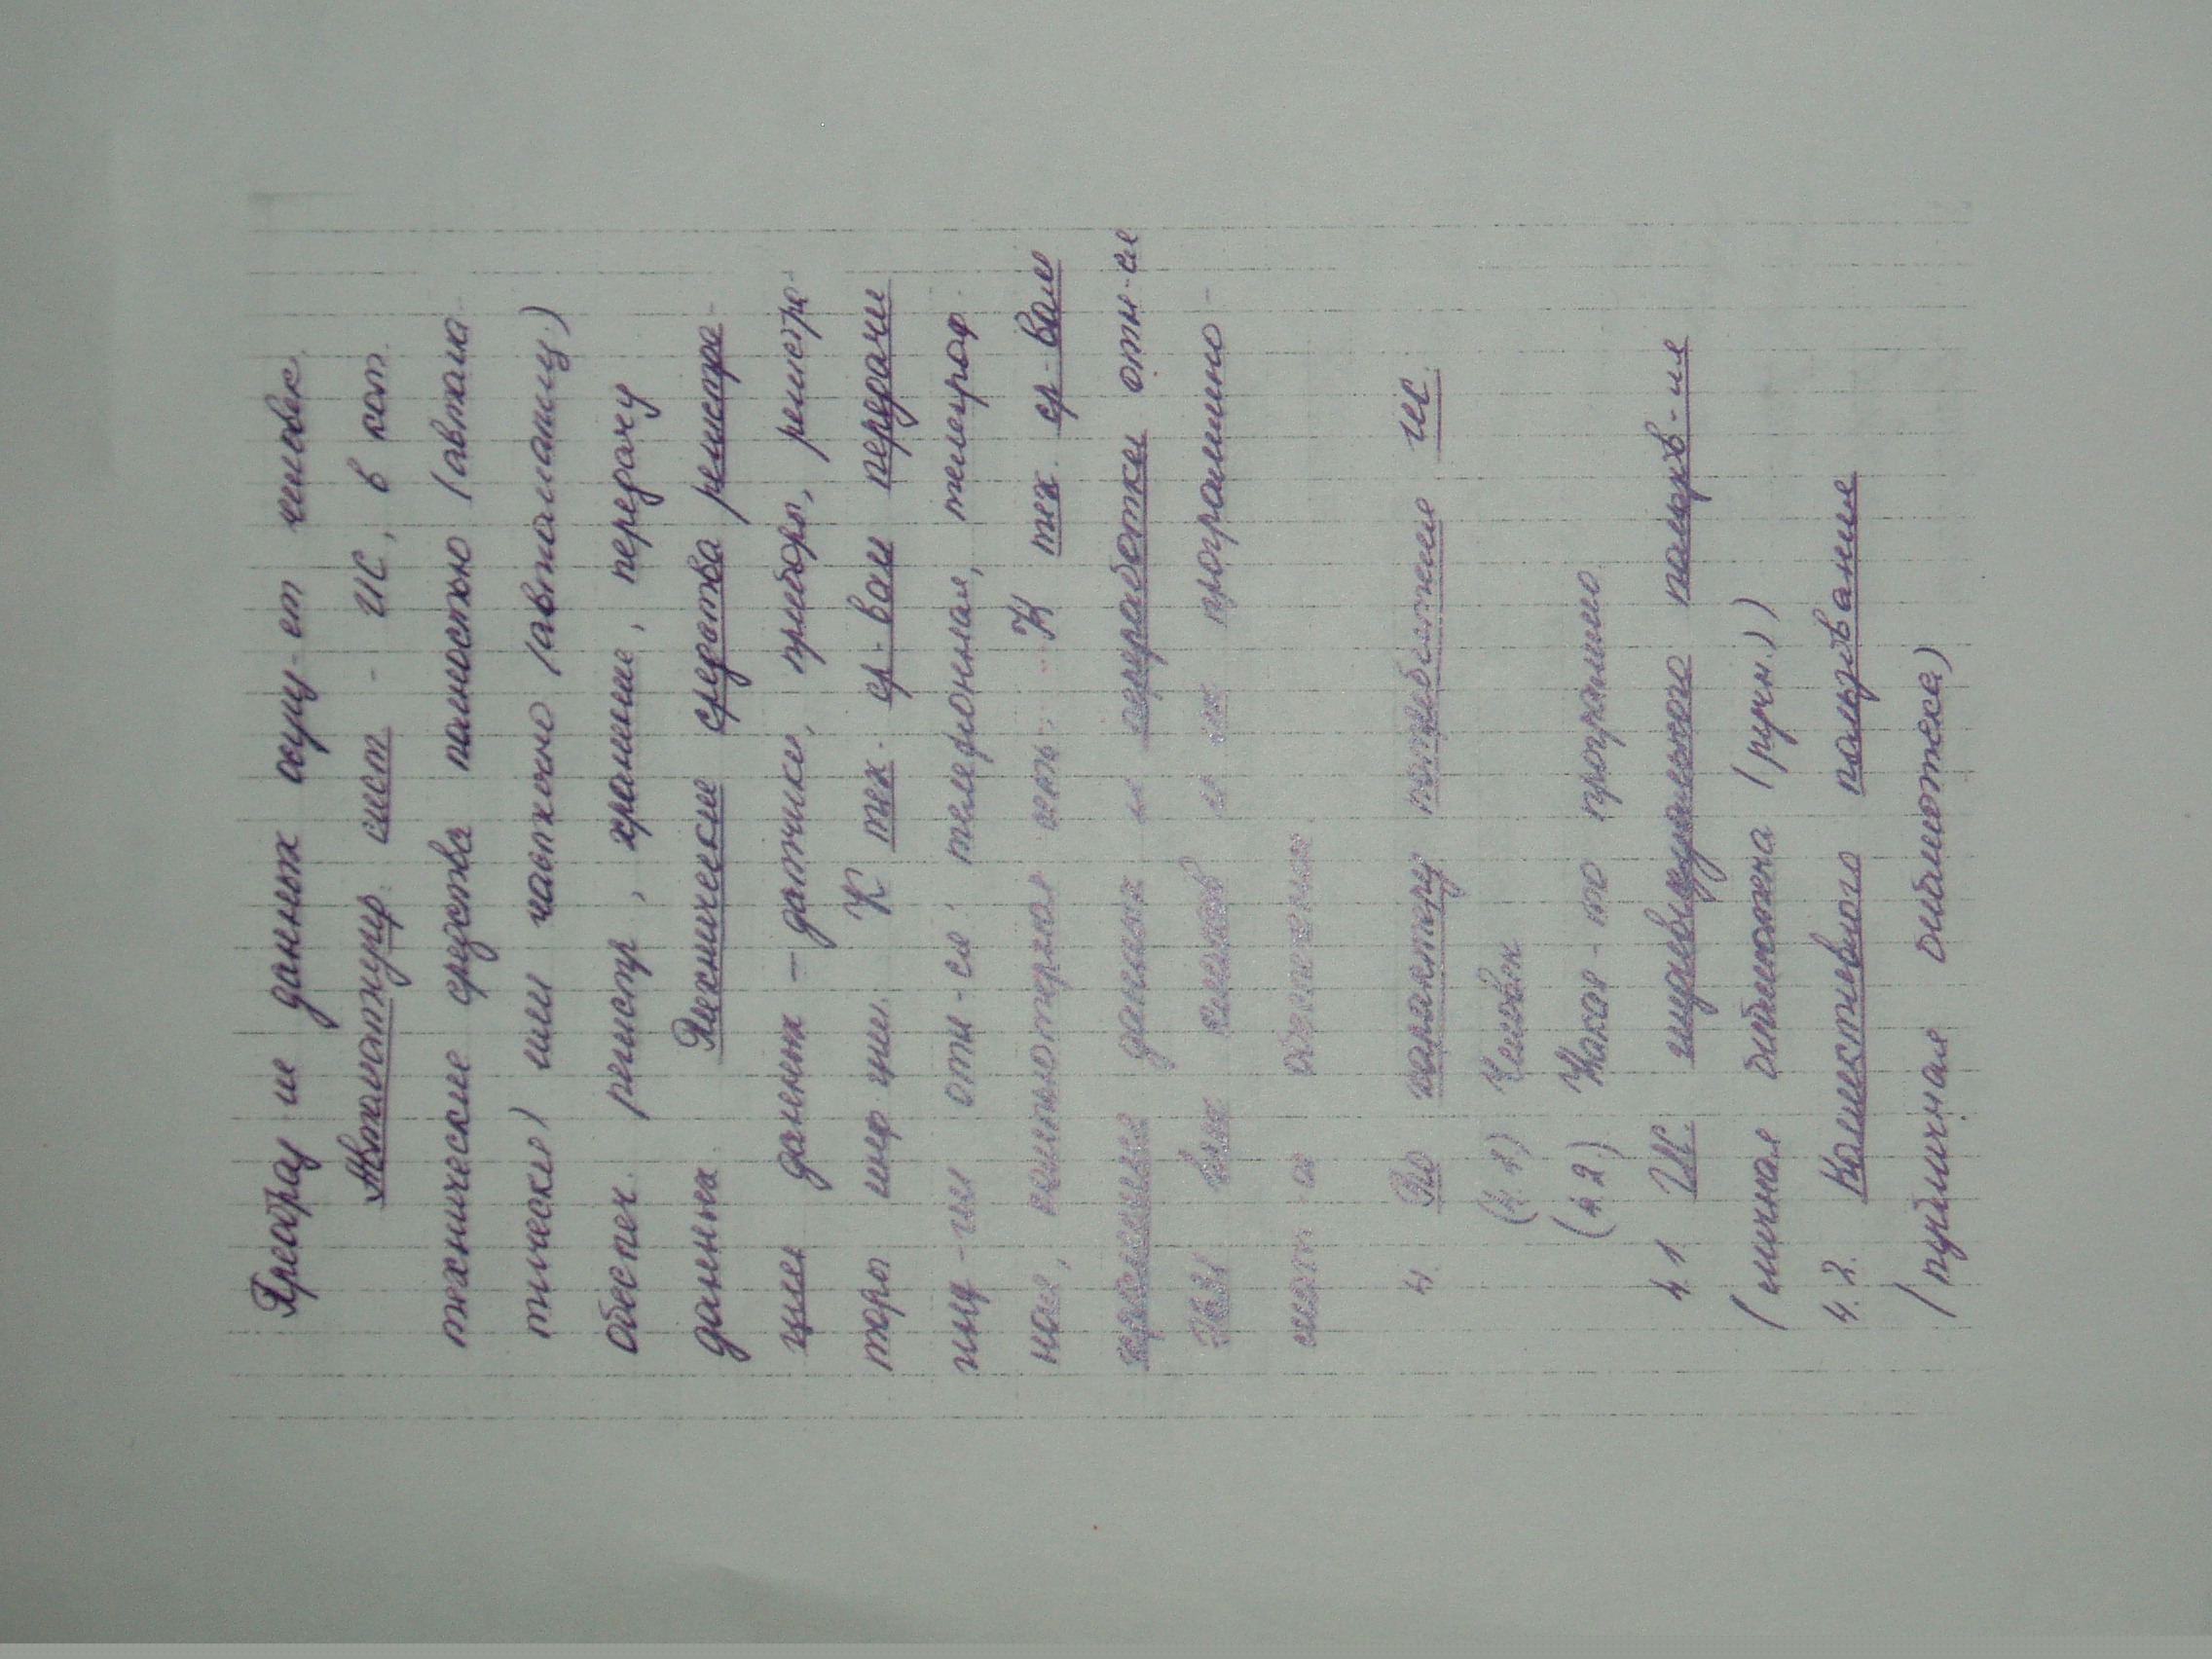 Преобраз-ие данных осущ-ет человек.
Автоматизир. сист. - ИС, в кот.
технические средства полностью (автома-
тически) или частично (автоматиз.)
обеспеч. регистр., хранение, передачу
данных. Технические средства регистра-
ции данных – датчики, приборы, регистра-
торы инф-ции. К тех. ср-вам передачи
инф-ции отн-ся: телефонная, телеграф-
ная, компьютерная сеть... К тех. ср-вам
хранения данных и переработки отн-ся
ЭВМ всех классов и их программно-
обеспечение.
4. По характеру потребителя ИС.
(4.1) Человек
(4.2) Какая-то программа
4.1 ИС индивидуального пользов-ия
(личная библиотека (ручн.))
4.2. Коллективного пользование
(публичная библиотека)